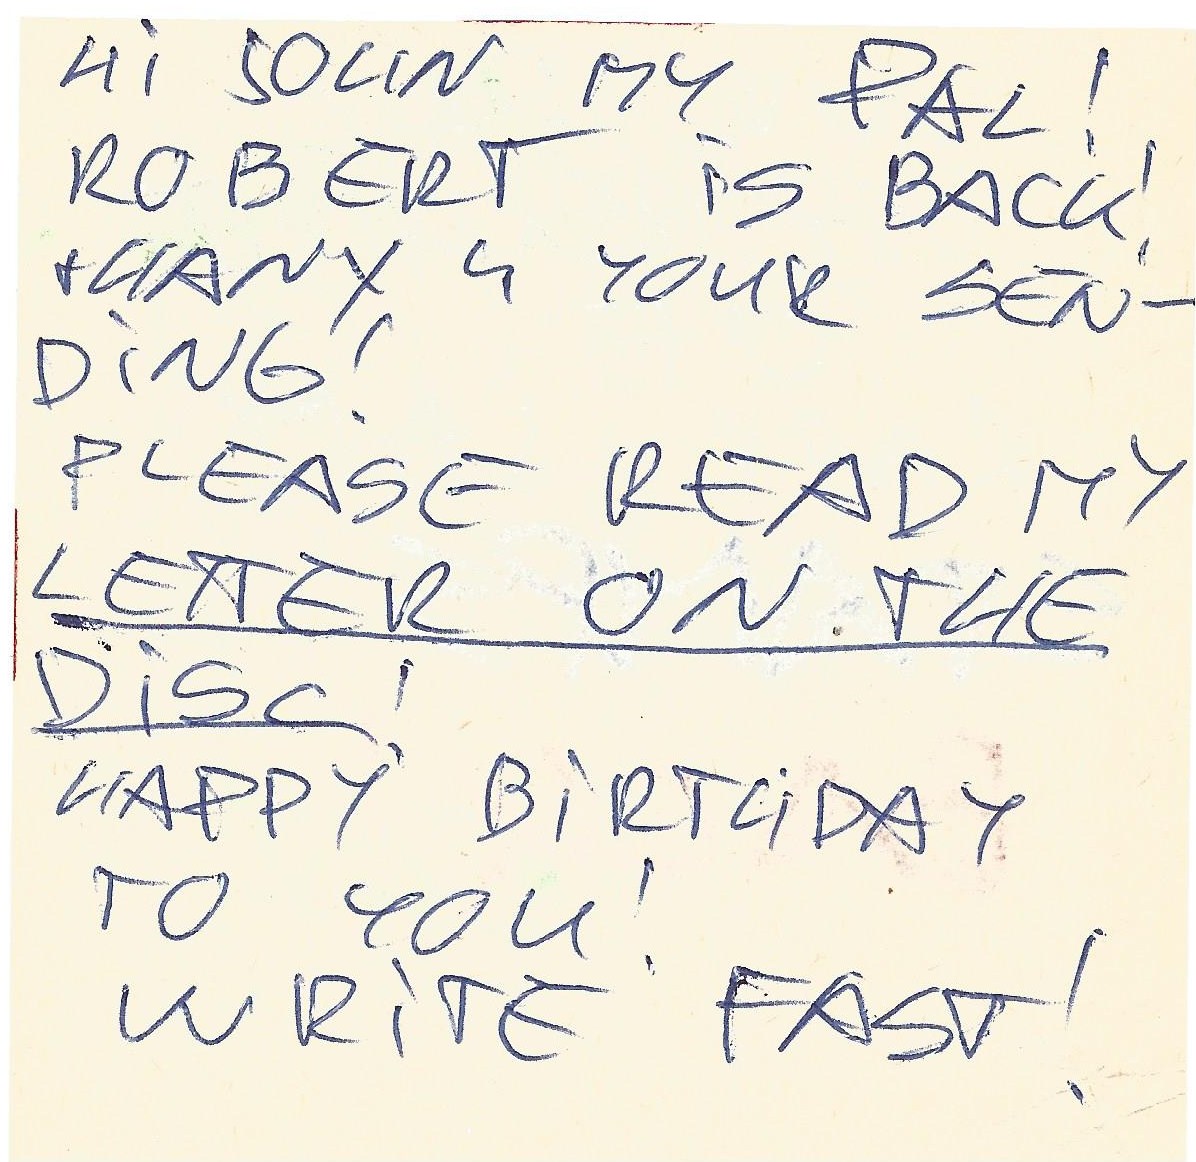 Hi JOHN MY PAL!
ROBERT iS BACK!
tHANX 4 YOUR SEN-
DiNG!
PLEASE READ MY
LETTER ON THE
DiSC!
HAPPY BiRTHDAY
TO YOU!
WRiTE FAST!